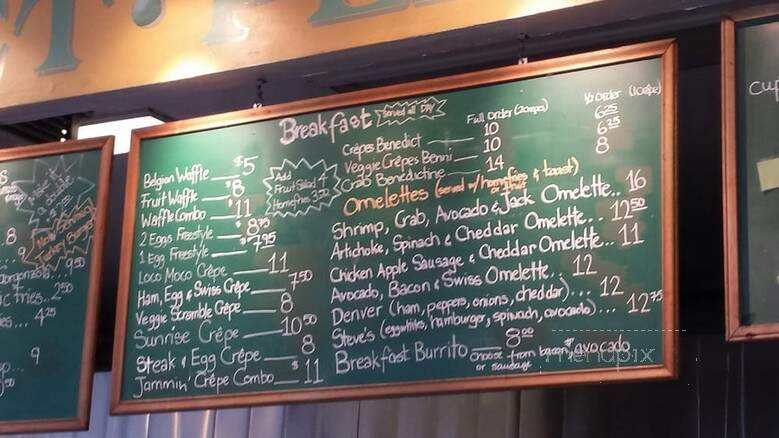 Breakfast served all day
Belgian Waffle $5
Fruit Waffle $8
Waffle Combo $11
2 Eggs Freestyle $8.75
1 Egg Freestyle $7.95
Loco Moco Crêpe 11
Ham, Egg & Swiss Crêpe 7.50
Veggie Scramble Crêpe 8
Sunrise Crêpe 10.50
Steak & Egg Crêpe 8
Jammin' Crêpe Combo $11
Add
Fruit Salad 4
Homefries 3.50
Full Order (2 crepes) ½ Order (1 Crêpe)
Crêpes Benedict 10 6.25
Veggie Crêpes Benni 10 6.25
Crab Benedictine 14 8
Omelettes (served w/ homefries & toast)
or fruit
Shrimp, Crab, Avocado & Jack Omelette.. 16
Artichoke, Spinach & Cheddar Omelette.. 12.50
Chicken Apple Sausage & Cheddar Omelette... 11
Avocado, Bacon & Swiss Omelette.. 12
Denver (ham, peppers, onions, cheddar)... 12
Steve's (eggwhites, hamburger, spinach, avocado).. 12.75
Breakfast Burrito 8.00 choose from bacon & avocado
or sausage
menupix
Make it
a double
Now Serving
Turkey Burger
8
9.50
fries.. 2.50
4.25
9
cup